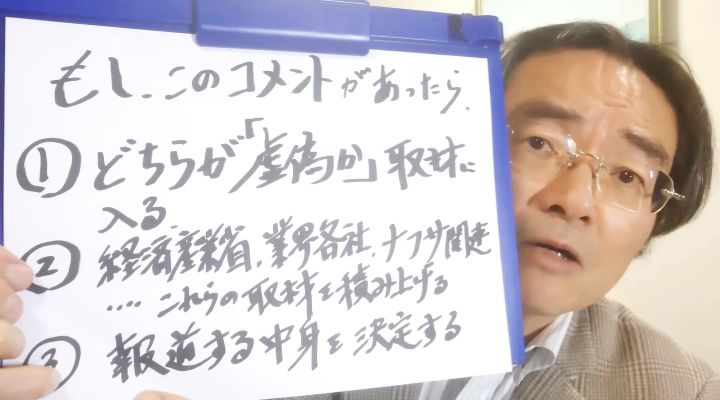 もし、このコメントがあったら、
① どちらが「虚偽か」取材に
入る、
② 経済産業省、業界各社、ナフサ関連
‥‥ これらの取材を積み上げる
③ 報道する中身を決定する